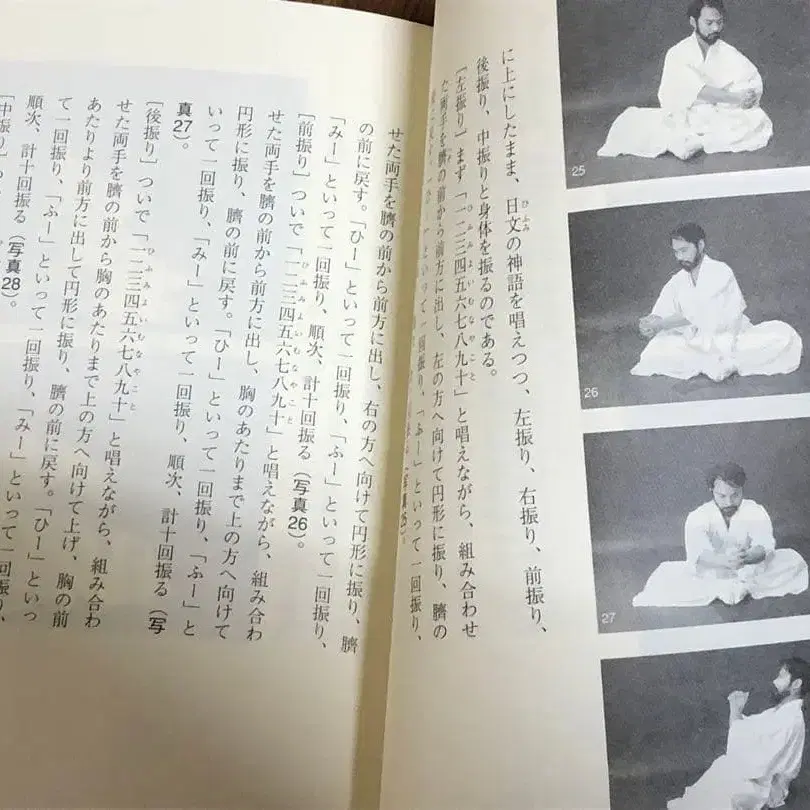 ひふみ
に上にしたまま、日文の神語を唱えつつ、左振り、右振り、前振り、
後振り、中振りと身体を振るのである。
ひふみよいむなやこと
[左振り] まず「一二三四五六七八九十」と唱えながら、組み合わせ
た両手を臍の前から前方に出し、左の方へ向けて円形に振り、臍の
「ふー」といって一回振り、
25)。
せた両手を臍の前から前方に出し、右の方へ向けて円形に振り、臍
の前に戻す。「ひー」といって一回振り、「ふー」といって一回振り、
「みー」といって一回振り、順次、計十回振る(写真26)。
ひふみよいむなやこと
[前振り] ついで「一二三四五六七八九十」と唱えながら、組み合わ
せた両手を臍の前から前方に出し、胸のあたりまで上の方へ向けて
円形に振り、臍の前に戻す。「ひー」といって一回振り、「ふー」と
いって一回振り、「みー」といって一回振り、順次、計十回振る(写
真27)。
ひふみよいむなやこと
[後振り] ついで「一二三四五六七八九十」と唱えながら、組み合わ
せた両手を臍の前から胸のあたりまで上の方へ向けて上げ、胸の前
あたりより前方に出して円形に振り、臍の前に戻す。「ひー」といっ
て一回振り、「ふー」といって一回振り、「みー」といって一回振り、
順次、計十回振る(写真28)。
[中振り]
25
26
27